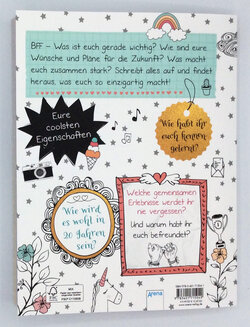 BFF – Was ist euch gerade wichtig? Wie sind eure
Wünsche und Pläne für die Zukunft? Was macht
euch zusammen stark? Schreibt alles auf und findet
heraus, was euch so einzigartig macht!
Eure
coolsten
Eigenschaften
Wie habt ihr
euch kennen-
gelernt?
Wie wird
es wohl in
20 Jahren
sein?
Welche gemeinsamen
Erlebnisse werdet ihr
nie vergessen?
Und warum habt ihr
euch befreundet?
MIX
Arena